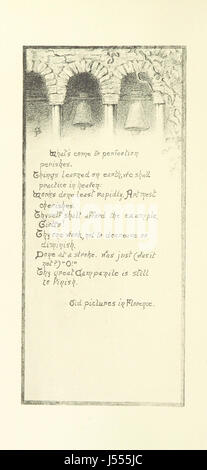 What's come to perfection
perishes.
Things learned on earth, we shall
practice in heaven:
Works done least rapidly, Art most
cherishes.
Thyself shalt afford the example,
Giotto!
Thy one work, not to decrease or
diminish,
Done at a stroke, was just (was it
not?) "O!"
Thy great Campanile is still
to finish.
Old pictures in Florence.
alamy
J555JC